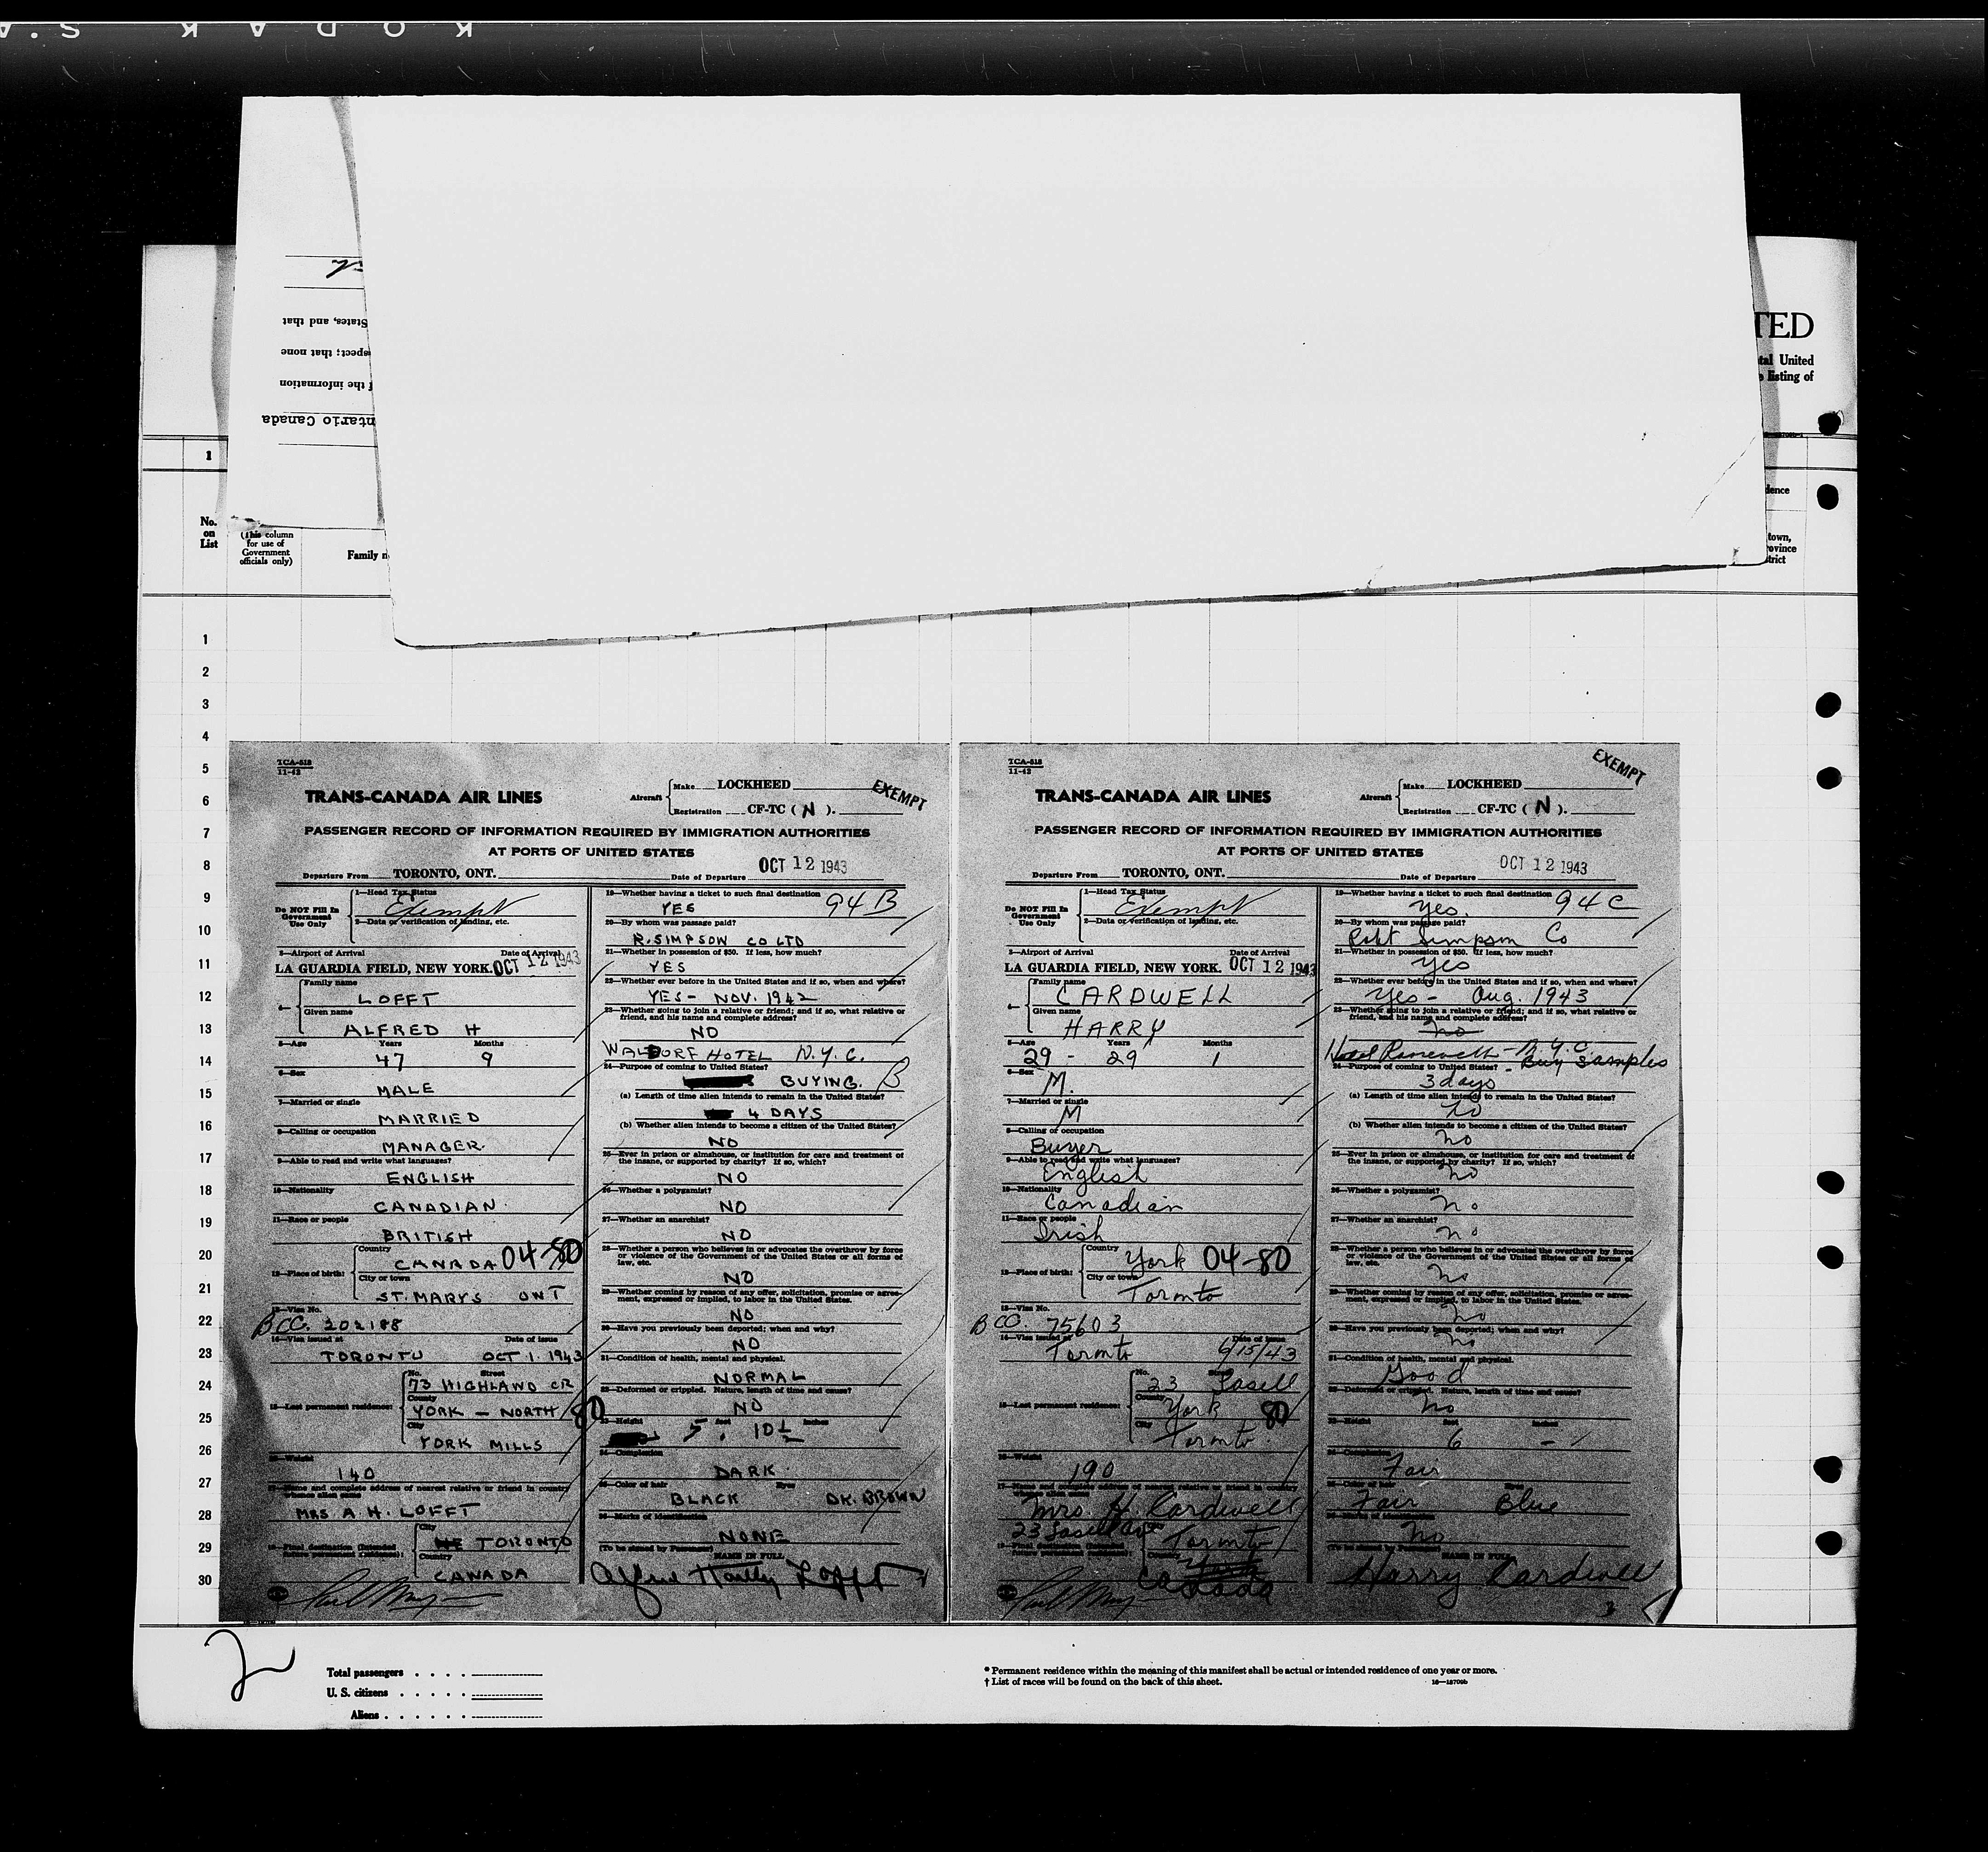 KODAK S.A
States, and that
spect; that none
f the information
ntario Canada
TED
tal United
listing of
1
dence
No.
on
List
(This column
for use of
Government
officials only)
Family n
town,
rovince
strict
1
2
3
4
5
6
7
8
9
10
11
12
13
14
15
16
17
18
19
20
21
22
23
24
25
26
27
28
29
30
TCA-518
11-42
TRANS-CANADA AIR LINES
Aircraft
Make LOCKHEED
Registration CF-TC ( N ).
EXEMPT
PASSENGER RECORD OF INFORMATION REQUIRED BY IMMIGRATION AUTHORITIES
AT PORTS OF UNITED STATES
Departure From TORONTO, ONT. Date of Departure OCT 12 1943
Do NOT Fill In
Government
Use Only
1—Head Tax Status
Exempt
2—Data or verification of landing, etc.
3—Airport of Arrival Date of Arrival
LA GUARDIA FIELD, NEW YORK. OCT 12 1943
4—
Family name
LOFFT
Given name
ALFRED H
5—Age Years Months
47 9
6—Sex
MALE
7—Married or single
MARRIED
8—Calling or occupation
MANAGER.
9—Able to read and write what languages?
ENGLISH
10—Nationality
CANADIAN.
11—Race or people
BRITISH
12—Place of birth:
Country
CANADA 04-80
City or town
ST. MARYS ONT
13—Visa No.
BCC. 202188
14—Visa issued at Date of issue
TORONTO OCT 1. 1943
15—Last permanent residence:
No. Street
73 HIGHLAND CR
County
YORK — NORTH 80
City
YORK MILLS
16—Weight
140
17—Name and complete address of nearest relative or friend in country
whence alien came
MRS A. H. LOFFT
18—Final destination (Intended
future permanent residence):
City
TORONTO
Country
CANADA
19—Whether having a ticket to such final destination 94B
YES
20—By whom was passage paid?
R. SIMPSON CO LTD
21—Whether in possession of $50. If less, how much?
YES
22—Whether ever before in the United States and if so, when and where?
YES - NOV. 1942
23—Whether going to join a relative or friend; and if so, what relative or
friend, and his name and complete address?
NO
WALDORF HOTEL N.Y.C.
24—Purpose of coming to United States?
BUYING. B
(a) Length of time alien intends to remain in the United States?
4 DAYS
(b) Whether alien intends to become a citizen of the United States?
NO
25—Ever in prison or almshouse, or institution for care and treatment of
the insane, or supported by charity? If so, which?
NO
26—Whether a polygamist?
NO
27—Whether an anarchist?
NO
28—Whether a person who believes in or advocates the overthrow by force
or violence of the Government of the United States or all forms of
law, etc.
NO
29—Whether coming by reason of any offer, solicitation, promise or agree-
ment, expressed or implied, to labor in the United States.
NO
30—Have you previously been deported; when and why?
NO
31—Condition of health, mental and physical.
NORMAL
32—Deformed or crippled. Nature, length of time and cause?
NO
33—Height feet inches
5. 10½
34—Complexion
DARK.
35—Color of hair Eyes
BLACK DK. BROWN
36—Marks of identification
NONE
(To be signed by Passenger) NAME IN FULL
Alfred Hartly Lofft
TCA-518
11-42
TRANS-CANADA AIR LINES
Aircraft
Make LOCKHEED
Registration CF-TC ( N ).
EXEMPT
PASSENGER RECORD OF INFORMATION REQUIRED BY IMMIGRATION AUTHORITIES
AT PORTS OF UNITED STATES
Departure From TORONTO, ONT. Date of Departure OCT 12 1943
Do NOT Fill In
Government
Use Only
1—Head Tax Status
Exempt
2—Data or verification of landing, etc.
3—Airport of Arrival Date of Arrival
LA GUARDIA FIELD, NEW YORK. OCT 12 1943
4—
Family name
CARDWELL
Given name
HARRY
5—Age Years Months
29 - 29 1
6—Sex
M.
7—Married or single
M
8—Calling or occupation
Buyer
9—Able to read and write what languages?
English
10—Nationality
Canadian
11—Race or people
Irish
12—Place of birth:
Country
York 04-80
City or town
Toronto
13—Visa No.
BCC. 75603
14—Visa issued at Date of issue
Toronto 6/15/43
15—Last permanent residence:
No. Street
23 Lasell
County
York 80
City
Toronto.
16—Weight
190
17—Name and complete address of nearest relative or friend in country
whence alien came
Mrs. H. Cardwell
23 Lasell Ave
18—Final destination (Intended
future permanent residence):
Toronto
Country
Canada
19—Whether having a ticket to such final destination 94C
Yes.
20—By whom was passage paid?
Robt Simpson Co
21—Whether in possession of $50. If less, how much?
Yes
22—Whether ever before in the United States and if so, when and where?
Yes - Aug. 1943
23—Whether going to join a relative or friend; and if so, what relative or
friend, and his name and complete address?
No
Hotel Roosevelt - N.Y.C.
24—Purpose of coming to United States? - Buy Samples
3 days
(a) Length of time alien intends to remain in the United States?
No
(b) Whether alien intends to become a citizen of the United States?
No
25—Ever in prison or almshouse, or institution for care and treatment of
the insane, or supported by charity? If so, which?
No
26—Whether a polygamist?
No
27—Whether an anarchist?
No
28—Whether a person who believes in or advocates the overthrow by force
or violence of the Government of the United States or all forms of
law, etc.
No
29—Whether coming by reason of any offer, solicitation, promise or agree-
ment, expressed or implied, to labor in the United States.
No
30—Have you previously been deported; when and why?
No
31—Condition of health, mental and physical.
Good
32—Deformed or crippled. Nature, length of time and cause?
No
33—Height feet inches
6 -
34—Complexion
Fair
35—Color of hair Eyes
Fair Blue
36—Marks of identification
No
(To be signed by Passenger) NAME IN FULL
Harry Cardwell
2
Total passengers . . . .
U. S. citizens . . . . .
Aliens . . . . . .
* Permanent residence within the meaning of this manifest shall be actual or intended residence of one year or more.
† List of races will be found on the back of this sheet.
16—18706b